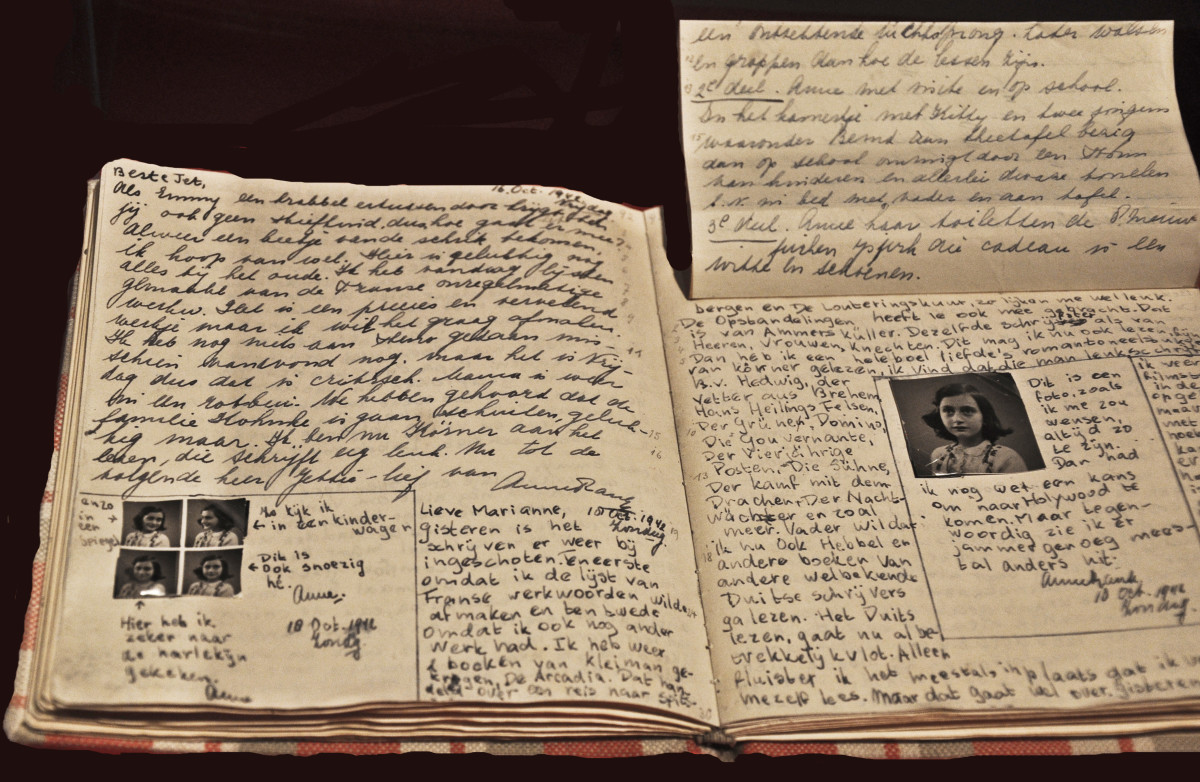 Beste Jet,
16 Oct. 1942
Als Emmy een krabbel
jij ook geen stiefkind, dus hoe gaat er mee?
Alweer een beetje van de schrik bekomen,
ik hoop van wel. Hier is gelukkig nog
alles bij het oude. Ik heb vandaag lijsten
gemaakt van de Franse onregelmatige
werkw. Dat is een precies en vervelend
werkje maar ik wil het graag afmaken.
Ik heb nog niets aan steno gedaan mis-
schien vanavond nog, maar het is Vrij-
dag dus dat is critisch. Mama is weer
We hebben gehoord dat de
familie is gaan schuilen, geluk-
kig maar. Ik ben nu Körner aan het
lezen, die schrijft erg leuk. Nu tot de
volgende keer Jettie-lief van
Anne Frank
anzo
in
een
spiegel
Zo kijk ik
in een kinder-
wagen
Dit is
ook snoezig
hè.
Anne.
18 Oct. 1942
Zondag
Hier heb ik
zeker naar
de harlekijn
gekeken.
Anne
Lieve Marianne,
18 Oct. 1942
Zondag.
gisteren is het
schrijven er weer bij
ingeschoten. Teneerste
omdat ik de lijst van
Franse werkwoorden wilde
afmaken en ten twede
omdat ik ook nog ander
werk had. Ik heb weer
2 boeken van kleiman ge-
kregen, De Arcadia. Dat han-
delt over een reis naar Spits-
een ontzettende
en grappen aan hoe de lessen zijn.
2e deel. Anne met visite en op school.
In het kamertje met Kitty en twee jongens
waaronder Bernd aan theetafel bezig
dan op school omringt door een
van kinderen en allerlei dwaze tonelen
b.v. in bed met vader en aan tafel.
3e deel. Anne haar toiletten de 8 nieuwe
jurken die cadeau is een
witte en schoenen.
bergen en De Louberingskuur, zo lijken me wel leuk.
De Opstandelingen heeft ie ook mee gebracht. Dat
is van Ammers küller. Dezelfde schrijfster
Heeren, Vrouwen, knechten. Dit mag ik nu ook lezen,
Dan heb ik een heleboel liefde's romantoneelstukjes
van körner gelezen, ik vind dat die man leuk schrijft
B.v. Hedwig, der
Vetter aus Brehem,
Hans Heilings Felsen,
Der Grünen Domino,
Die Gouvernante,
Der Vierjährige
Posten, Die Sühne,
Der kamf mit dem
Drachen, Der Nacht-
wächter en zoal
meer. Vader wil dat
ik nu ook Hebbel en
andere boeken van
andere welbekende
Duitse schrijvers
ga lezen. Het Duits
lezen, gaat nu al be-
trekkelijk vlot. Alleen
fluister ik het meestal inplaats dat ik
mezelf lees. Maar dat gaat wel over. Gisteren
Dit is een
foto, zoals
ik me zou
wensen,
altijd zo
te zijn.
Dan had
ik nog wel een kans
om naar Holywood te
komen. Maar tegen-
woordig zie ik er
jammer genoeg mees-
tal anders uit.
Anne Frank
18 Oct. 1942
Zondag